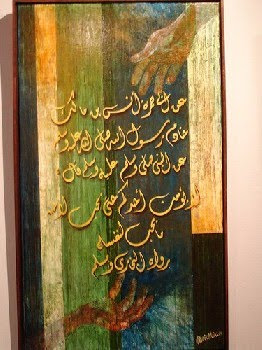 عن أبي حمزة أنس بن مالك
خادم رسول الله صلى الله عليه وسلم
عن النبي صلى الله عليه وسلم قال :
لا يؤمن أحدكم حتى يحب لأخيه
ما يحب لنفسه
رواه البخاري ومسلم